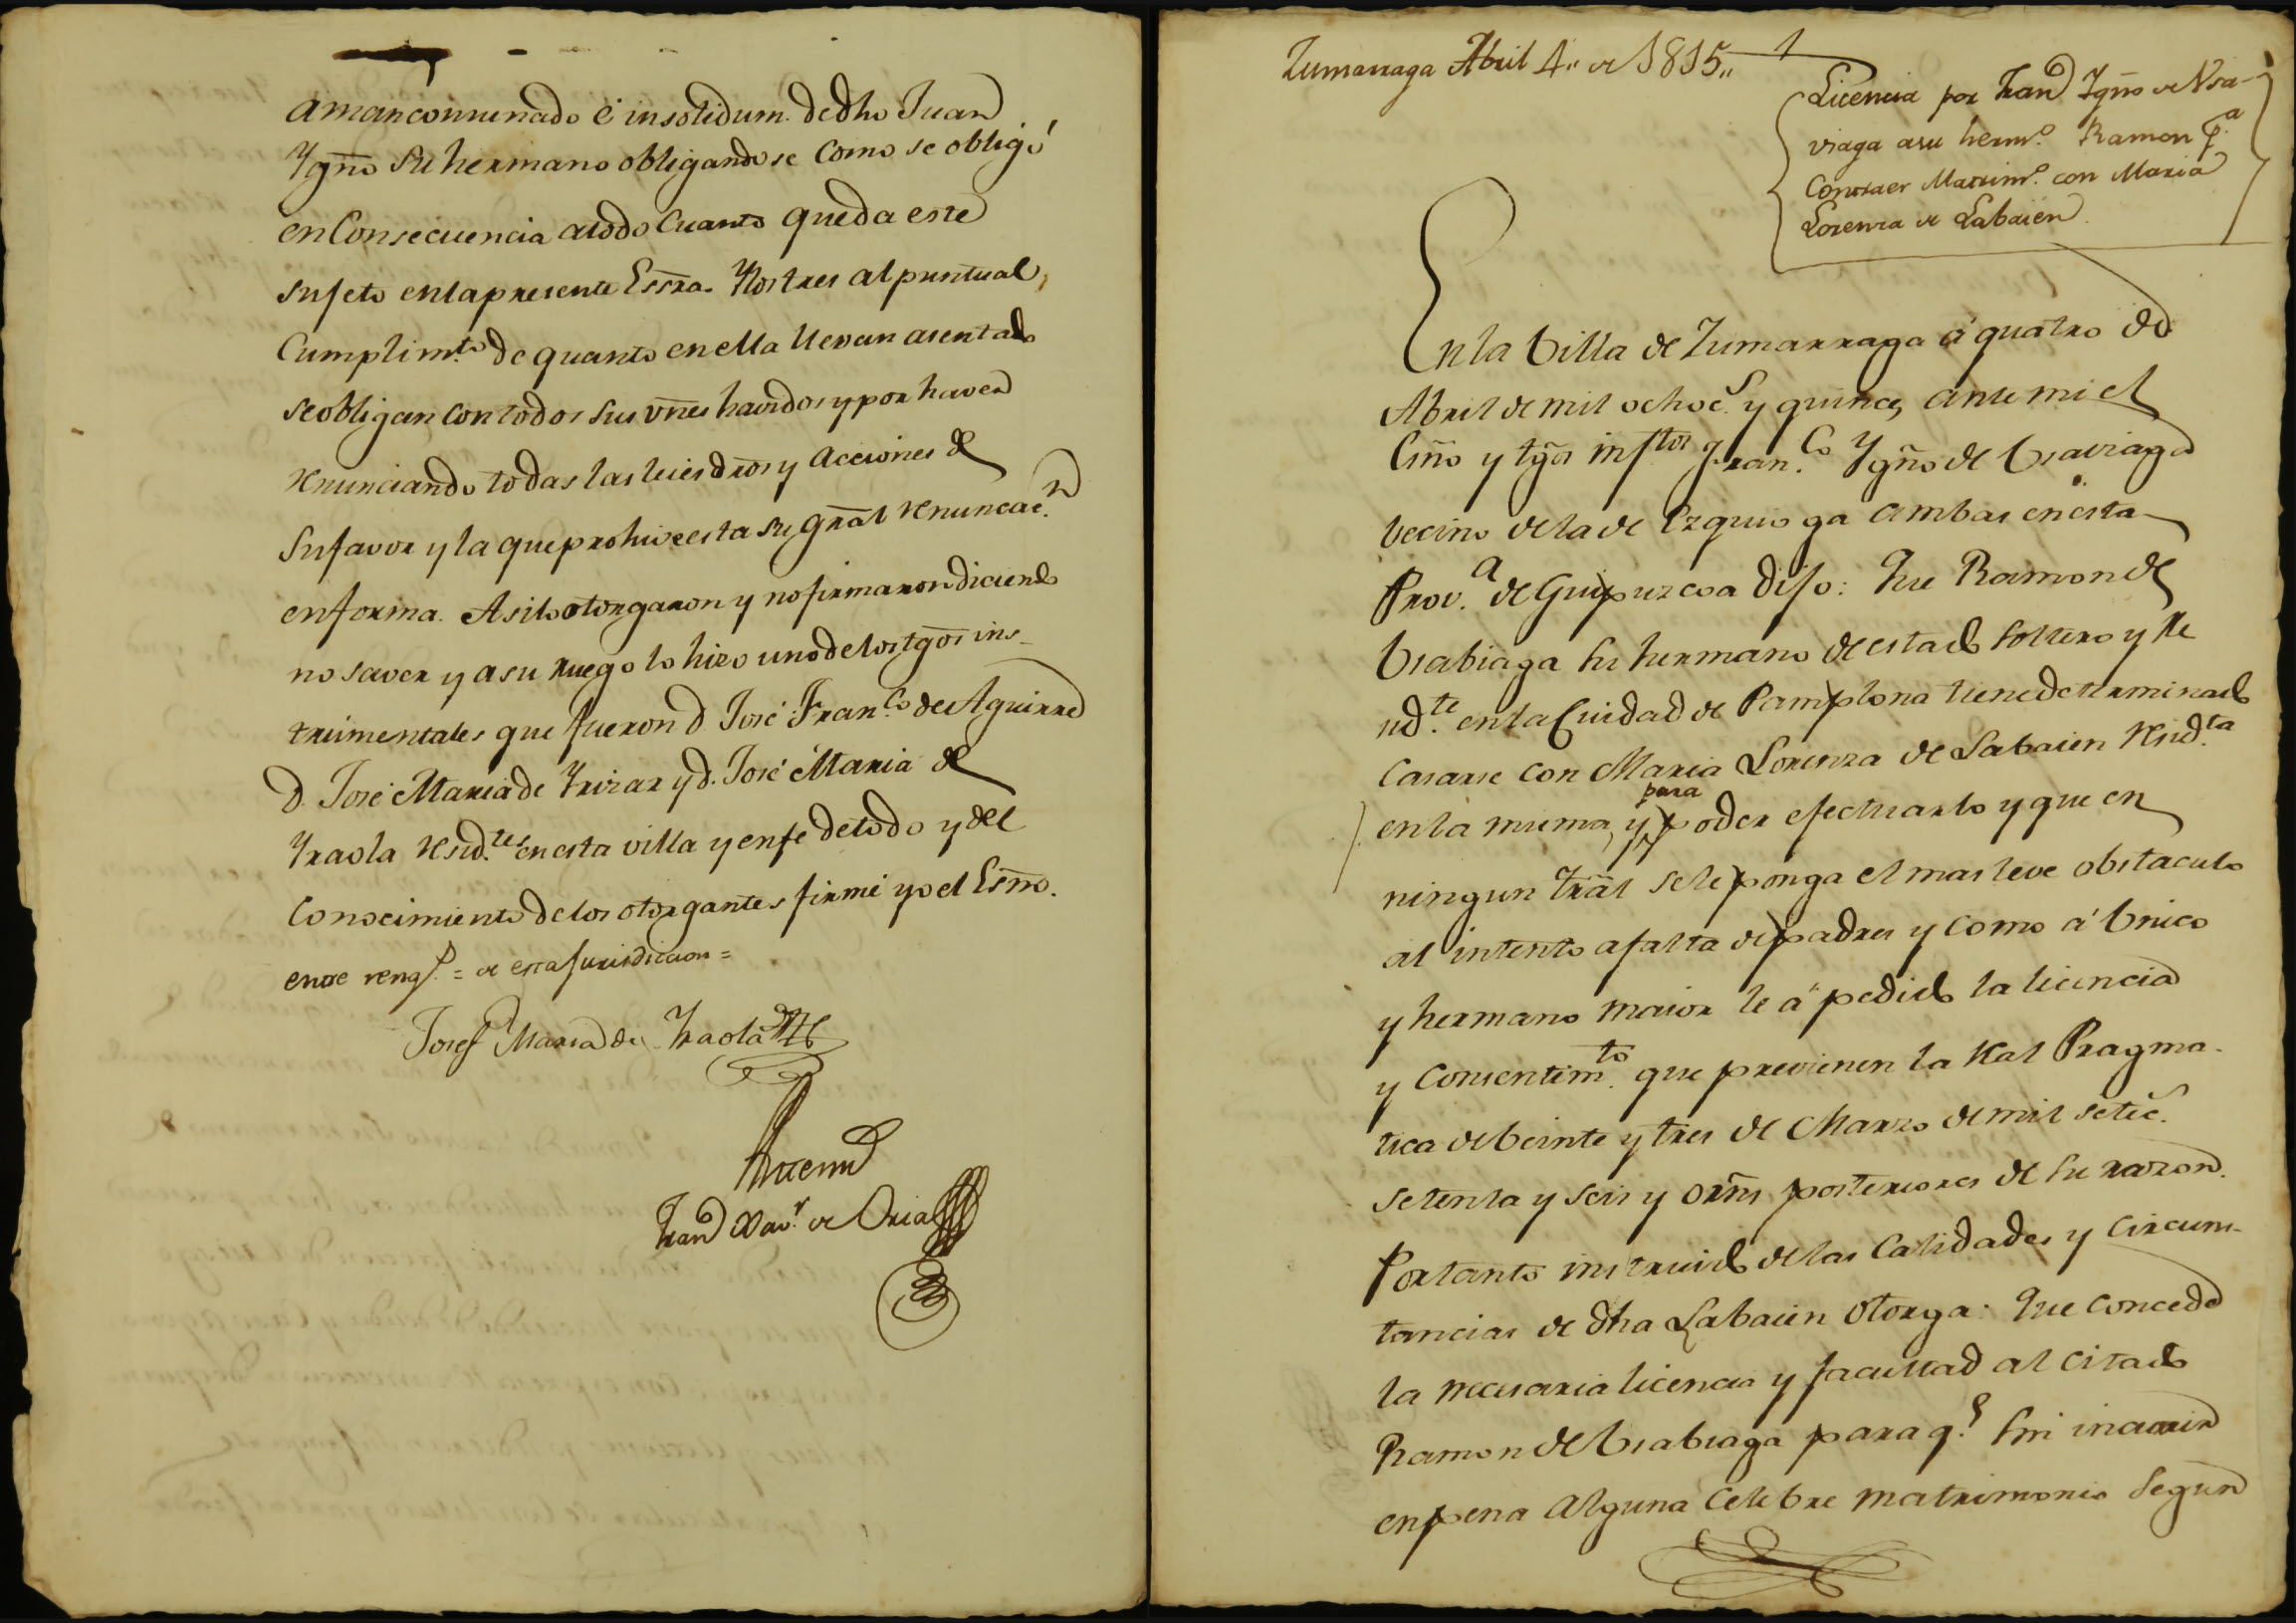 amancomunado é insolidum. de dho Juan
Ygño su hermano obligandose como se obligó
en Consecuencia atodo Cuanto queda este
sujeto enlapresente Essra. Ylos tres al puntual
Cumplimto. de quanto enella llevan asentado
seobligan con todos sus vnes havidos y por haver
renunciando todas las leies dros y acciones de
su favor y la que prohive esta su gral renunciacn.
enforma. Asilo otorgaron y nofirmaron diciendo
no saver y a su ruego lo hizo uno delos tgos ins-
trumentales que fueron d. José Franco. de Aguirre
d. José Maria de Yrizar y d. José Maria de
Yraola residtes. en esta villa y enfe de todo y del
Conocimiento delos otorgantes firmé yo el Esño.
entre rengs. = de esta jurisdiccion =
Josef Maria de Yraola
Antemi
Fran Xavr. de Oria
Zumarraga Abril 4,, de 1815,,
Licencia por Fran Ygño de Vsa-
viaga asu hermo. Ramon pa.
Contraer Matrimo. con Maria
Lorenza de Labaien.
En la Villa de Zumarraga á quatro de
Abril de mil ochocs. y quince, ante mi el
Esño y tgos instos Franco. Ygño de Vsaviaga
vecino dela de Ezquioga ambas en esta
Prova. de Guipuzcoa dijo: Que Ramon de
Vsabiaga su hermano de estado soltero y re
sidte. en la Ciudad de Pamplona tiene determinado
Casarse con Maria Lorenza de Labaien residta.
en la misma, y para poder efectuarlo y que en
ningun tral sele ponga el mas leve obstaculo
al intento afalta de padres y como á Vnico
y hermano maior le á pedido la licencia
y Consentimto. que previenen la Real Pragma-
tica de beinte y tres de Marzo de mil setecs.
setenta y seis y orns posteriores de su razon.
Portanto instruido delas Calidades y Circuns-
tancias de dha Labaien Otorga: Que concede
la necesaria licencia y facultad al citado
Ramon de Vsabiaga para qe. sin incurrir
en pena alguna Celebre matrimonio segun